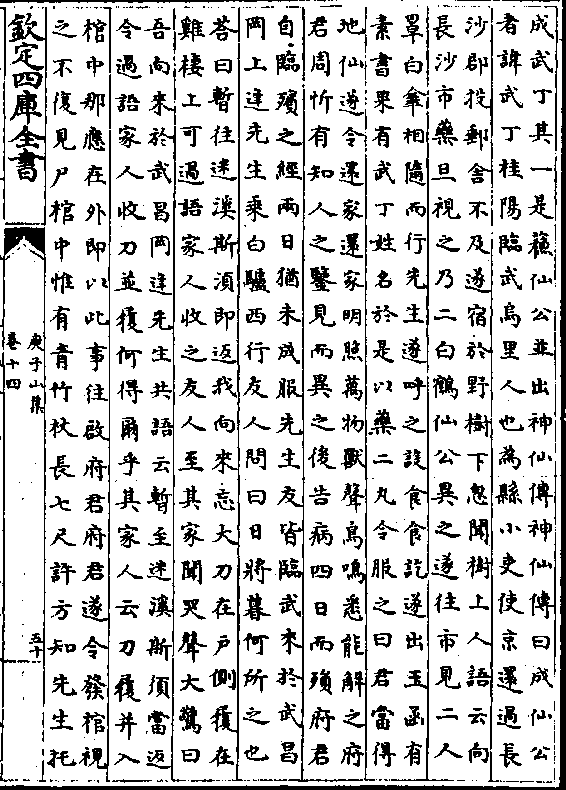 成武丁其一是蘓仙公並出神仙傳神仙傳曰成仙公
者諱武丁桂陽臨武烏里人也為縣小吏使京還過長
沙郡投郵舍不及遂宿於野樹下忽聞樹上人語云向
長沙市藥旦視之乃二白鶴仙公異之遂往市見二人
罩白傘相隨而行先生遂呼之設食食訖遂出玉函有
素書果有武丁姓名於是以藥二丸令服之曰君當得
地仙遂令還家還家明照萬物獸聲鳥鳴悉能解之府
君周忻有知人之鑒見而異之後告病四日而殞府君
自臨殯之經兩日猶未成服先生友皆臨武來於武昌
岡上逢先生乘白騾西行友人問曰日將暮何所之也
荅曰暫往迷溪斯須即返我向來忘大刀在戸側履在
雞棲上可過語家人收之友人至其家聞哭聲大驚曰
吾向來於武昌岡逢先生共語云暫至迷溪斯須當返
令過語家人收刀並履何得爾乎其家人云刀履并入
棺中那應在外即以此事往啟府君府君遂令發棺視
之不復見尸棺中惟有青竹杖長七尺許方知先生托
欽定四庫全書
庾子山集
卷十四
五十